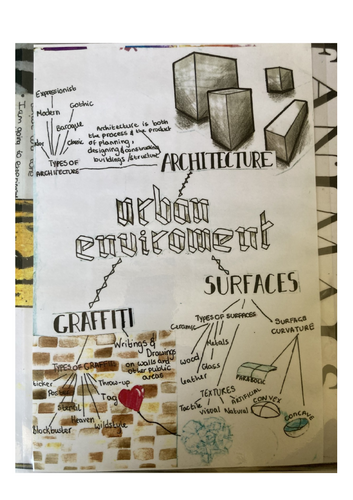 Expressionist
Gothic
Modern
Baroque
classic
TYPES OF
ARCHITECTURE
Architecture is both
the process & the product
of planning,
designing & constructing
buildings/structure
ARCHITECTURE
urban
enviroment
SURFACES
TYPES OF SURFACES
Ceramic
Metals
Wood
Glass
leather
SURFACE
CURVATURE
TEXTURES
Tactile
Visual
Natural
ARTIFICIAL
PARABOLIC
CONVEX
CONCAVE
GRAFFITI
Writings &
Drawings
on walls and
other public
areas
TYPES OF GRAFFITI
Sticker
Poster
Stencil
Heaven
Blockbuster
Wildstyle
Tag
Throw-up